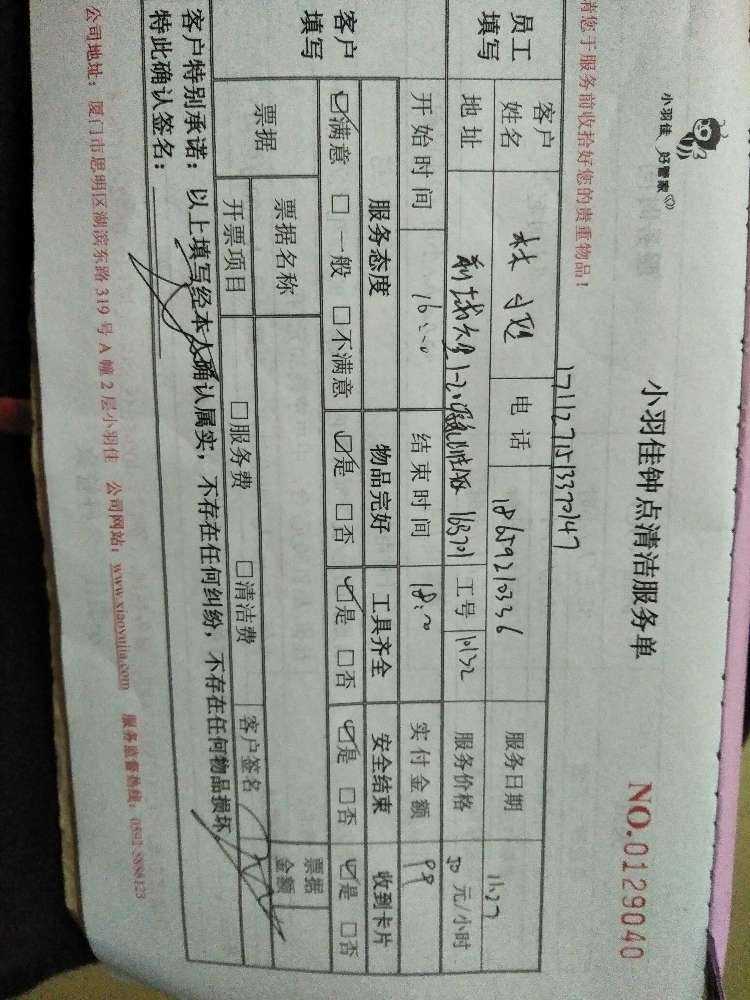 小羽佳 好管家
小羽佳钟点清洁服务单
NO.0129040
请您于服务前收拾好您的贵重物品！
17112715133370147
员工填写
客户姓名 林 电话 18659210336 服务日期 11.27
地址 1-20 163701 工号 10132 服务价格 50 元/小时
开始时间 16:00 结束时间 18:00 实付金额 99
客户填写
服务态度 物品完好 工具齐全 安全结束 收到卡片
☑满意 □一般 □不满意 ☑是 □否 ☑是 □否 ☑是 □否 ☑是 □否
票据 票据名称 票据金额
开票项目 □服务费 □清洁费 客户签名
客户特别承诺：以上填写经本人确认属实，不存在任何纠纷，不存在任何物品损坏
特此确认签名：
公司地址：厦门市思明区湖滨东路319号A幢2层小羽佳 公司网站：www.xiaoyujia.com 服务监督热线：0592-5888123